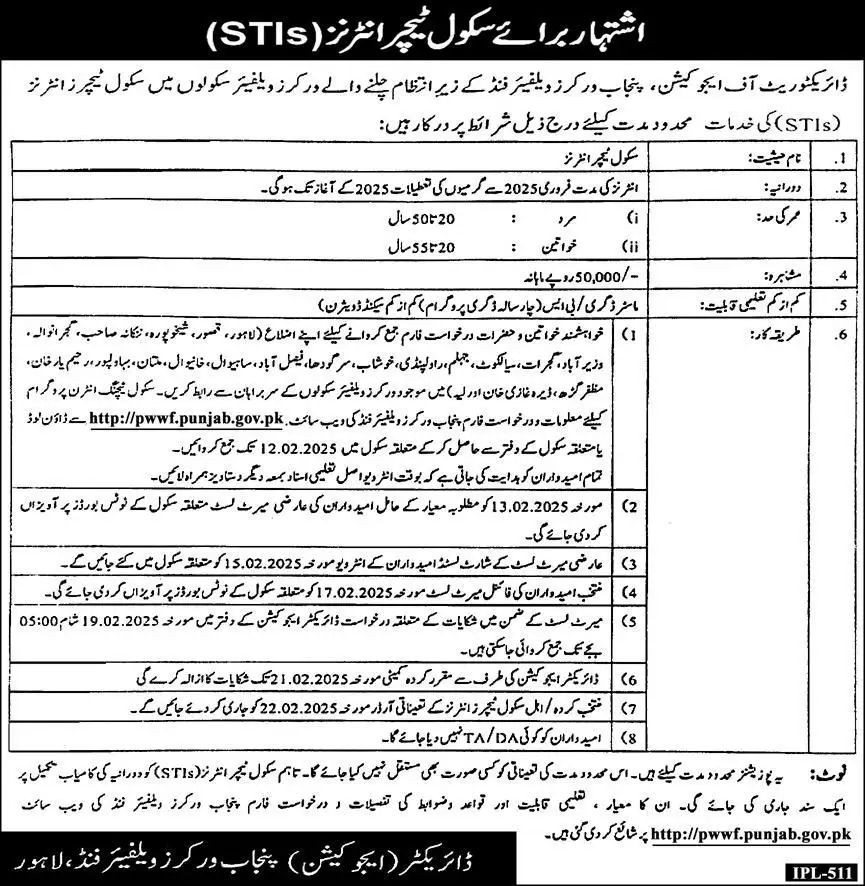 اشتہار برائے سکول ٹیچر انٹرنز (STIs)
ڈائریکٹوریٹ آف ایجوکیشن، پنجاب ورکرز ویلفیئر فنڈ کے زیر انتظام چلنے والے ورکرز ویلفیئر سکولوں میں سکول ٹیچرز انٹرنز
(STIs) کی خدمات محدود مدت کیلئے درج ذیل شرائط پر درکار ہیں:
1. نام حیثیت: سکول ٹیچر انٹرنز
2. دورانیہ: انٹرنز کی مدت فروری 2025 سے گرمیوں کی تعطیلات 2025 کے آغاز تک ہوگی۔
3. عمر کی حد: i) مرد : 20 تا 50 سال
ii) خواتین : 20 تا 55 سال
4. مشاہرہ: 50,000/- روپے ماہانہ
5. کم از کم تعلیمی قابلیت: ماسٹر ڈگری/ بی ایس (چار سالہ ڈگری پروگرام) کم از کم سیکنڈ ڈویژن)
6. طریقہ کار: 1) خواہشمند خواتین و حضرات درخواست فارم جمع کروانے کیلئے اپنے اضلاع (لاہور، قصور، شیخوپورہ، ننکانہ صاحب، گجرانوالہ،
وزیر آباد، گجرات، سیالکوٹ، جہلم، راولپنڈی، خوشاب، سرگودھا، فیصل آباد، ساہیوال، خانیوال، ملتان، بہاولپور، رحیم یار خان،
مظفر گڑھ، ڈیرہ غازی خان اور لیہ) میں موجود ورکرز ویلفیئر سکولوں کے سربراہان سے رابطہ کریں۔ سکول ٹیچنگ انٹرن پروگرام
کیلئے معلومات و درخواست فارم پنجاب ورکرز ویلفیئر فنڈ کی ویب سائٹ. http://pwwf.punjab.gov.pk سے ڈاؤن لوڈ
یا متعلقہ سکول کے دفتر سے حاصل کر کے متعلقہ سکول میں 12.02.2025 تک جمع کروائیں۔
تمام امیدواران کو ہدایت کی جاتی ہے کہ بوقت انٹرویو اصل تعلیمی اسناد بمعہ دیگر دستاویز ہمراہ لائیں۔
2) مورخہ 13.02.2025 کو مطلوبہ معیار کے حامل امیدواران کی عارضی میرٹ لسٹ متعلقہ سکول کے نوٹس بورڈز پر آویزاں
کر دی جائے گی۔
3) عارضی میرٹ لسٹ کے شارٹ لسٹڈ امیدواران کے انٹرویو مورخہ 15.02.2025 کو متعلقہ سکول میں کئے جائیں گے۔
4) منتخب امیدواران کی فائنل میرٹ لسٹ مورخہ 17.02.2025 کو متعلقہ سکول کے نوٹس بورڈز پر آویزاں کر دی جائے گی۔
5) میرٹ لسٹ کے ضمن میں شکایات کے متعلقہ درخواست ڈائریکٹر ایجوکیشن کے دفتر میں مورخہ 19.02.2025 شام 05:00
بجے تک جمع کروائی جاسکتی ہیں۔
6) ڈائریکٹر ایجوکیشن کی طرف سے مقرر کردہ کمیٹی مورخہ 21.02.2025 تک شکایات کا ازالہ کرے گی
7) منتخب کردہ/ اہل سکول ٹیچرز انٹرنز کے تعیناتی آرڈر مورخہ 22.02.2025 کو جاری کر دئے جائیں گے۔
8) امیدواران کو کوئی TA/DA نہیں دیا جائے گا۔
نوٹ: یہ پوزیشنز محدود مدت کیلئے ہیں۔ اس محدود مدت کی تعیناتی کو کسی صورت بھی مستقل نہیں کیا جائے گا۔ تاہم سکول ٹیچر انٹرنز (STIs) کو دورانیہ کی کامیاب تکمیل پر
ایک سند جاری کی جائے گی۔ ان کا معیار، تعلیمی قابلیت اور قواعد و ضوابط کی تفصیلات و درخواست فارم پنجاب ورکرز ویلفیئر فنڈ کی ویب سائٹ
http://pwwf.punjab.gov.pk پر شائع کر دی گئی ہیں۔
ڈائریکٹر (ایجوکیشن) پنجاب ورکرز ویلفیئر فنڈ، لاہور
IPL-511